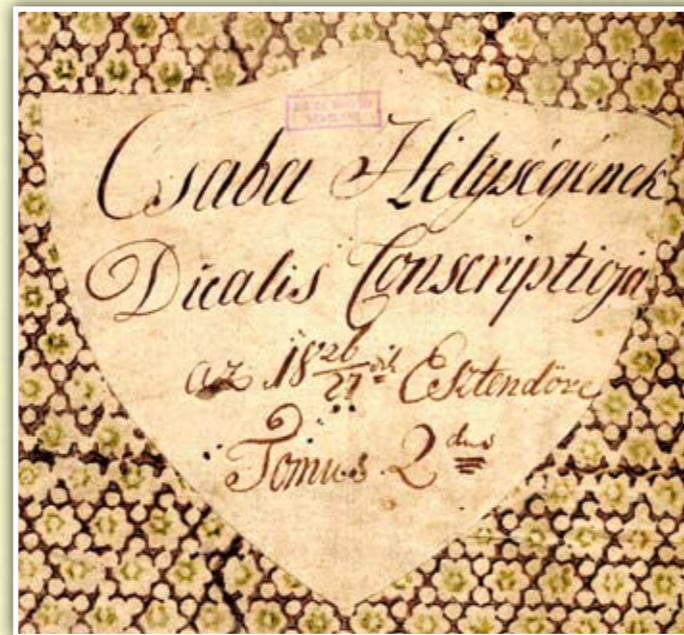 Csaba Helységének
Dicalis Conscriptioja
az 18 26/27 dik Esztendöre
Tomus 2 dus